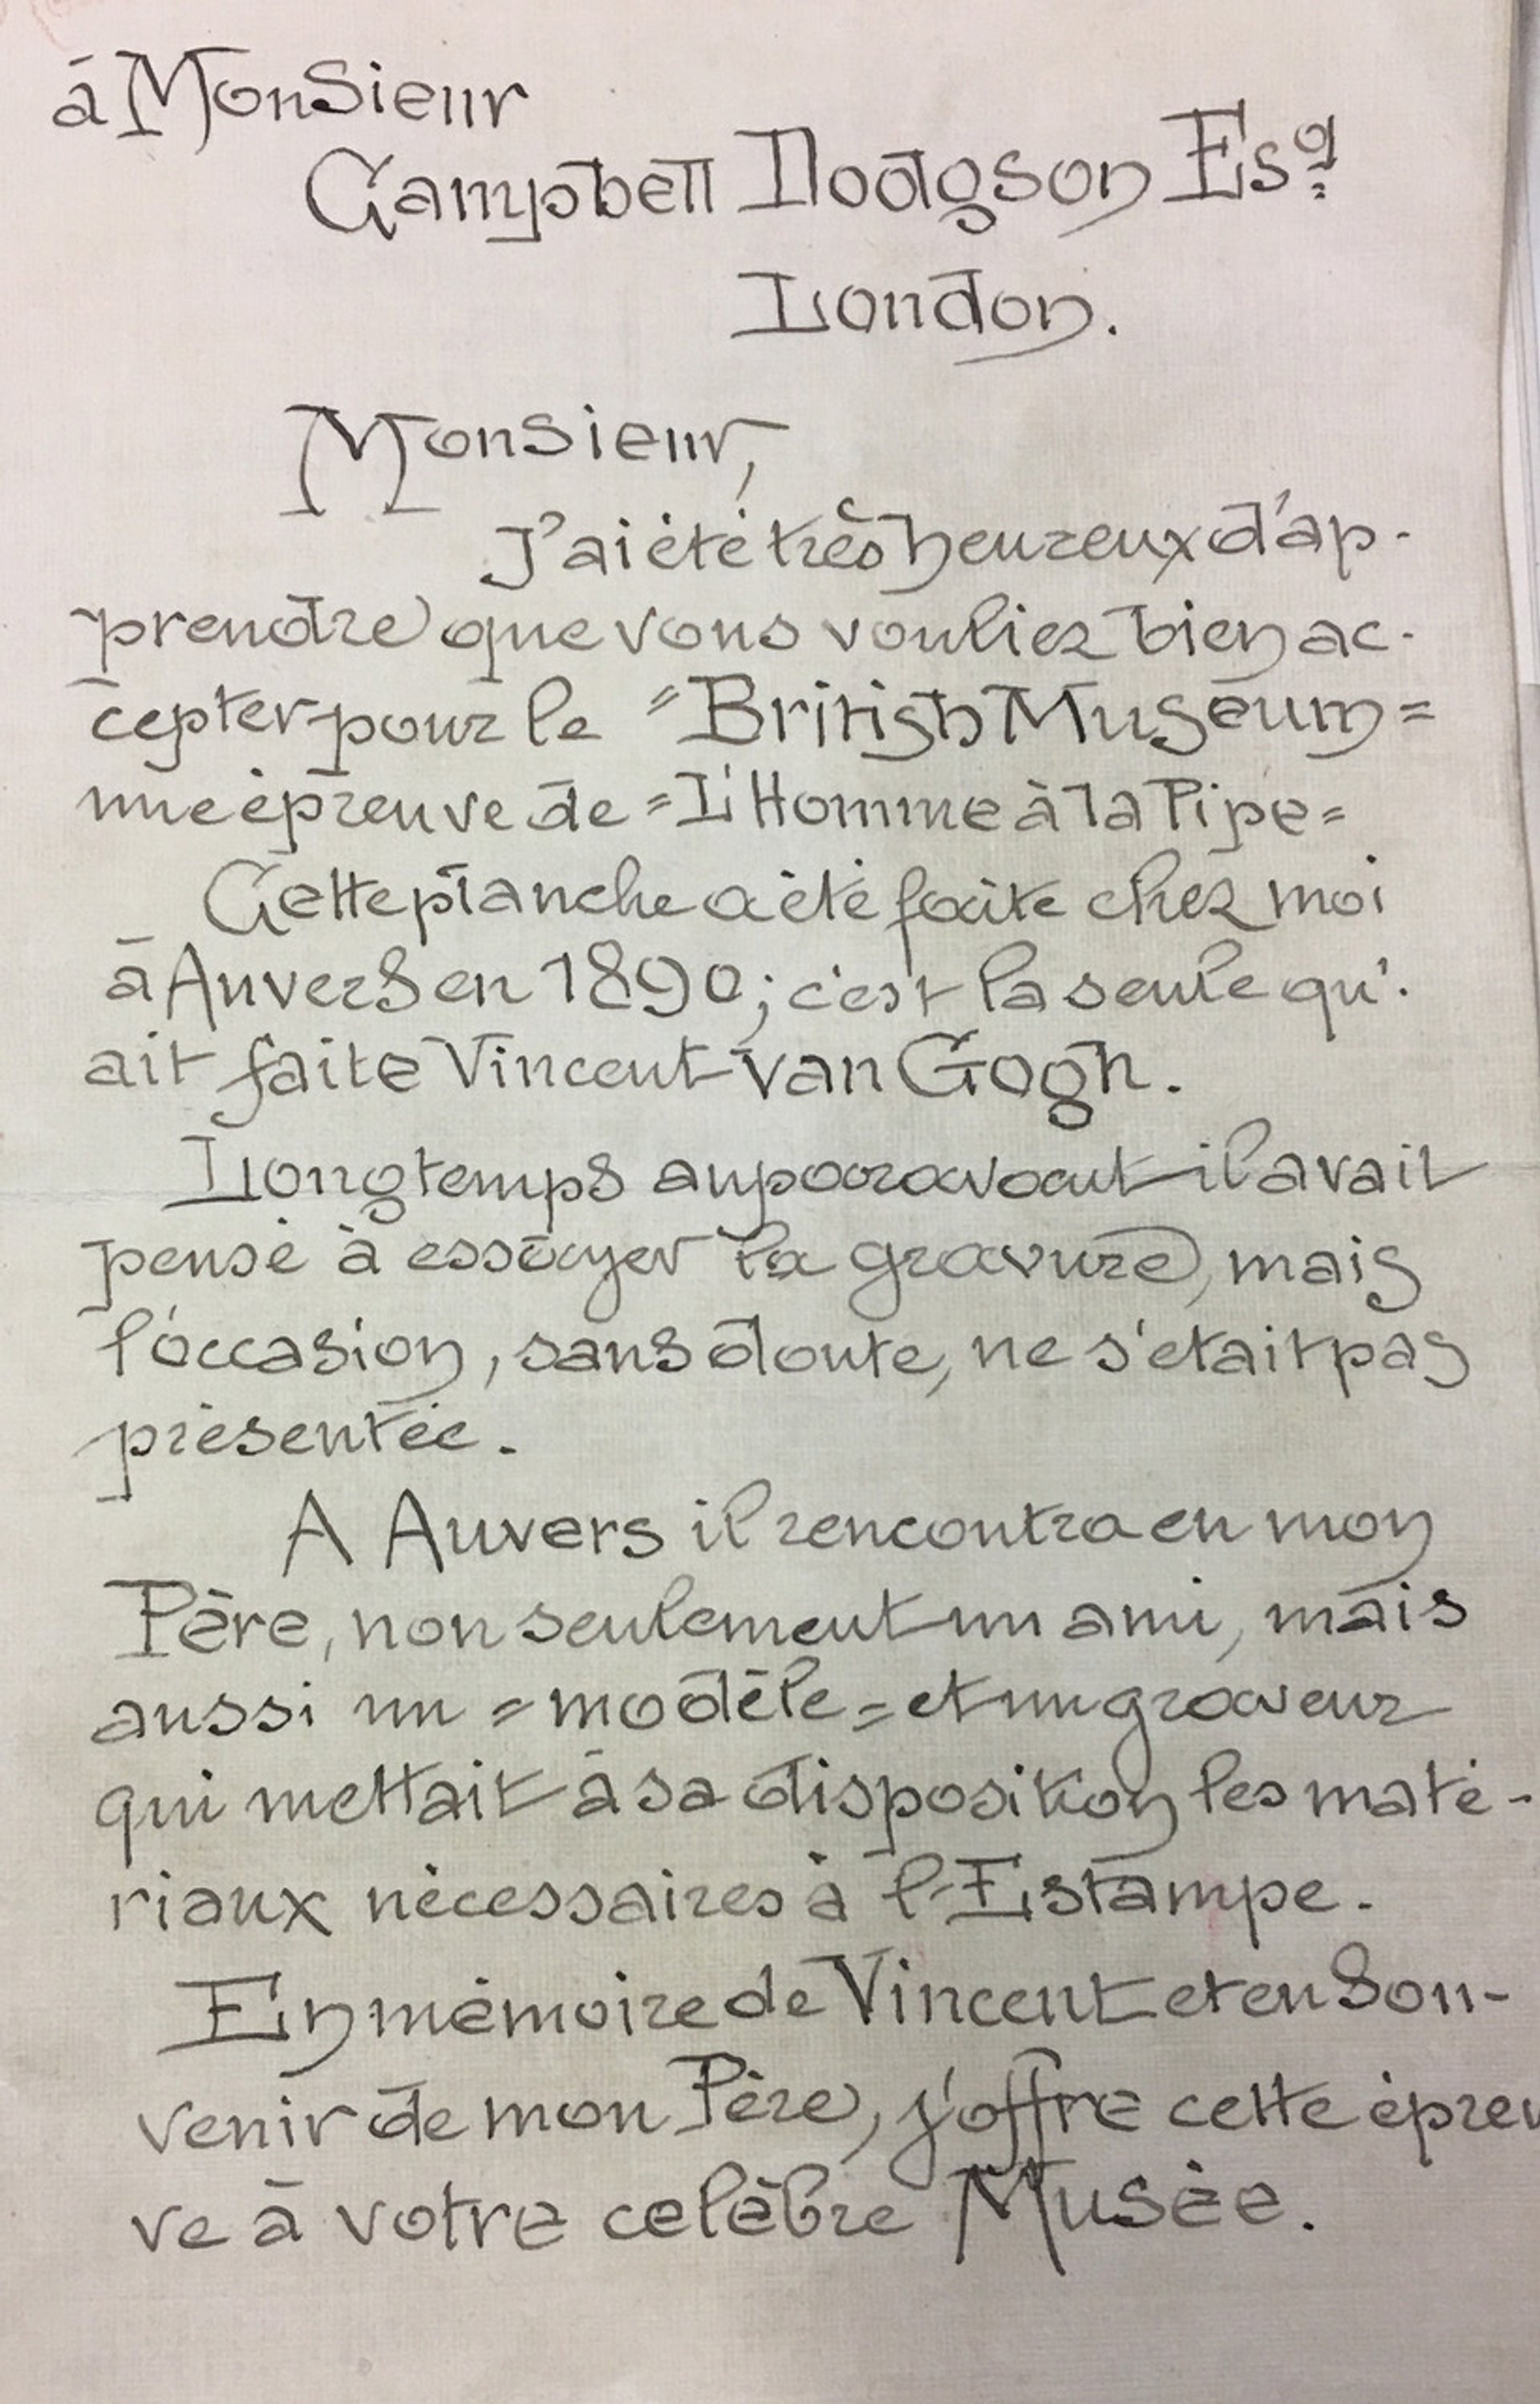 à Monsieur
Campbell Dodgson Esq.
London.
Monsieur,
J'ai été très heureux d'ap-
prendre que vous vouliez bien ac-
cepter pour le "British Muséum"
une épreuve de "L'Homme à la Pipe"
Cette planche a été faite chez moi
à Auvers en 1890; c'est la seule qu'
ait faite Vincent van Gogh.
Longtemps auparavant il avait
pensé à essayer la gravure, mais
l'occasion, sans doute, ne s'etait pas
présentée.
A Auvers il rencontra en mon
Père, non seulement un ami, mais
aussi un "modèle" et un graveur
qui mettait à sa disposition les maté-
riaux nécessaires à l'Estampe.
En mémoire de Vincent et en Sou-
venir de mon Père, j'offre cette épreu
ve à votre celèbre Musée.